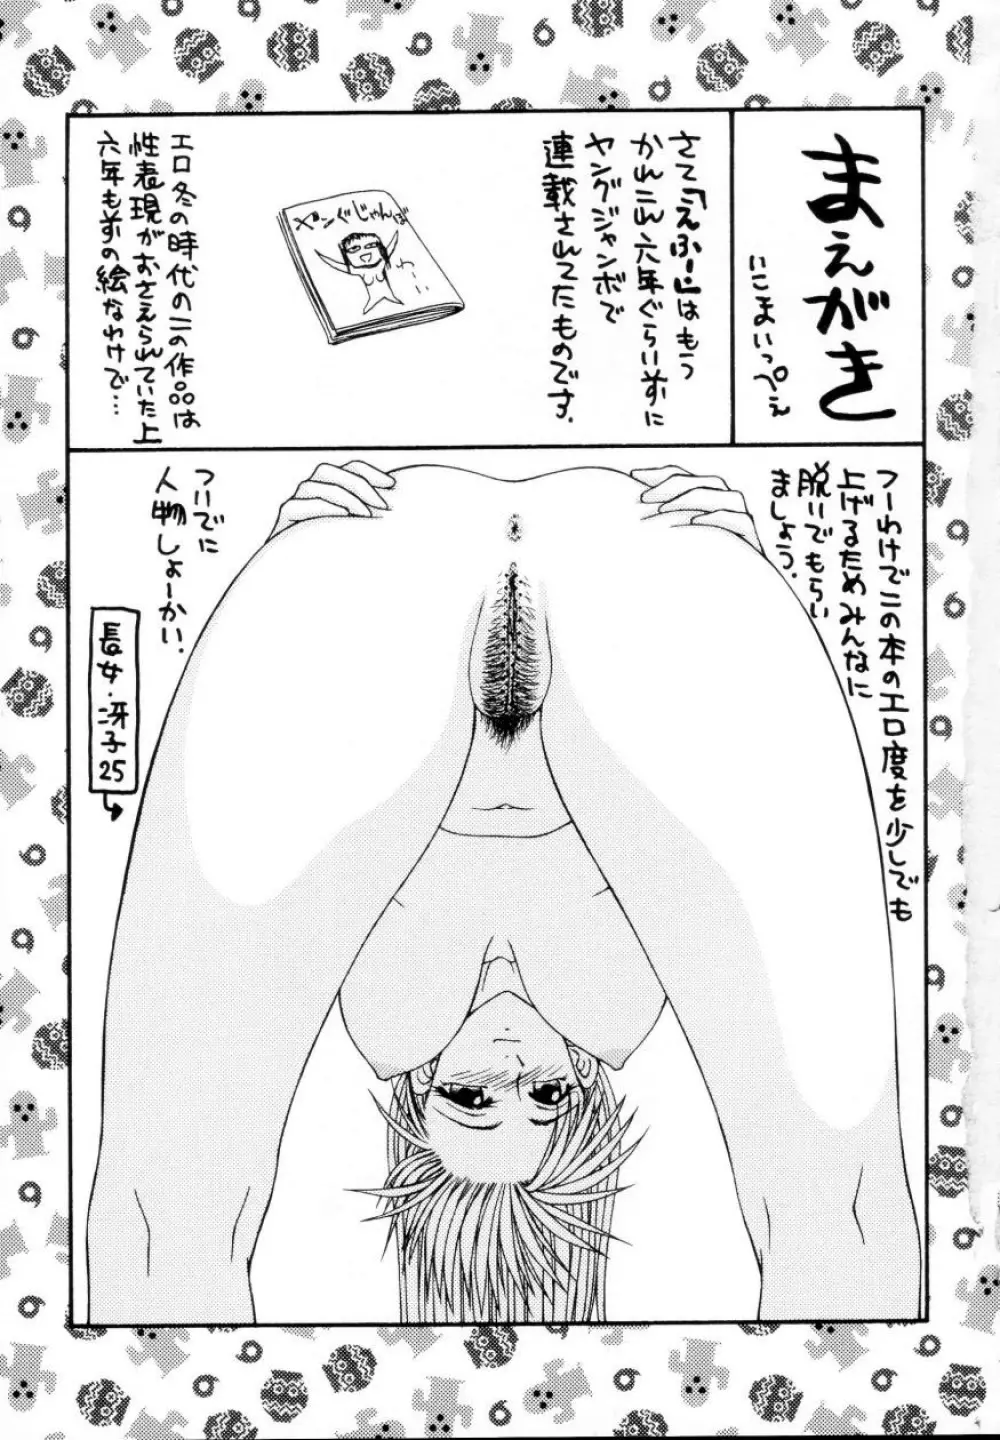 まえがき
いこまいっぺぇ
さて「えふー」はもう
かれこれ六年ぐらい前に
ヤングジャンボで
連載されてたものです。
ヤングじゃんぼ
エロ冬の時代のこの作品は
性表現がおさえられていた上
六年も前の絵なわけで…
つーわけでこの本のエロ度を少しでも
上げるためみんなに
脱いでもらい
ましょう。
ついでに
人物しょーかい。
長女・冴子25